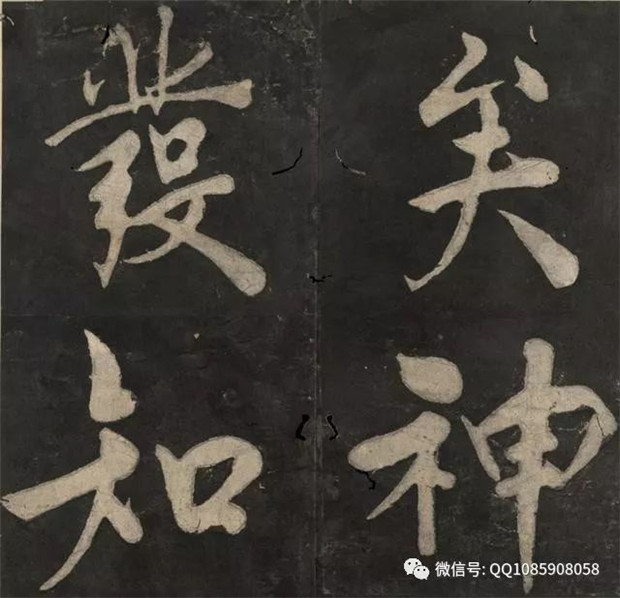 矣神
發知
微信号: QQ1085908058